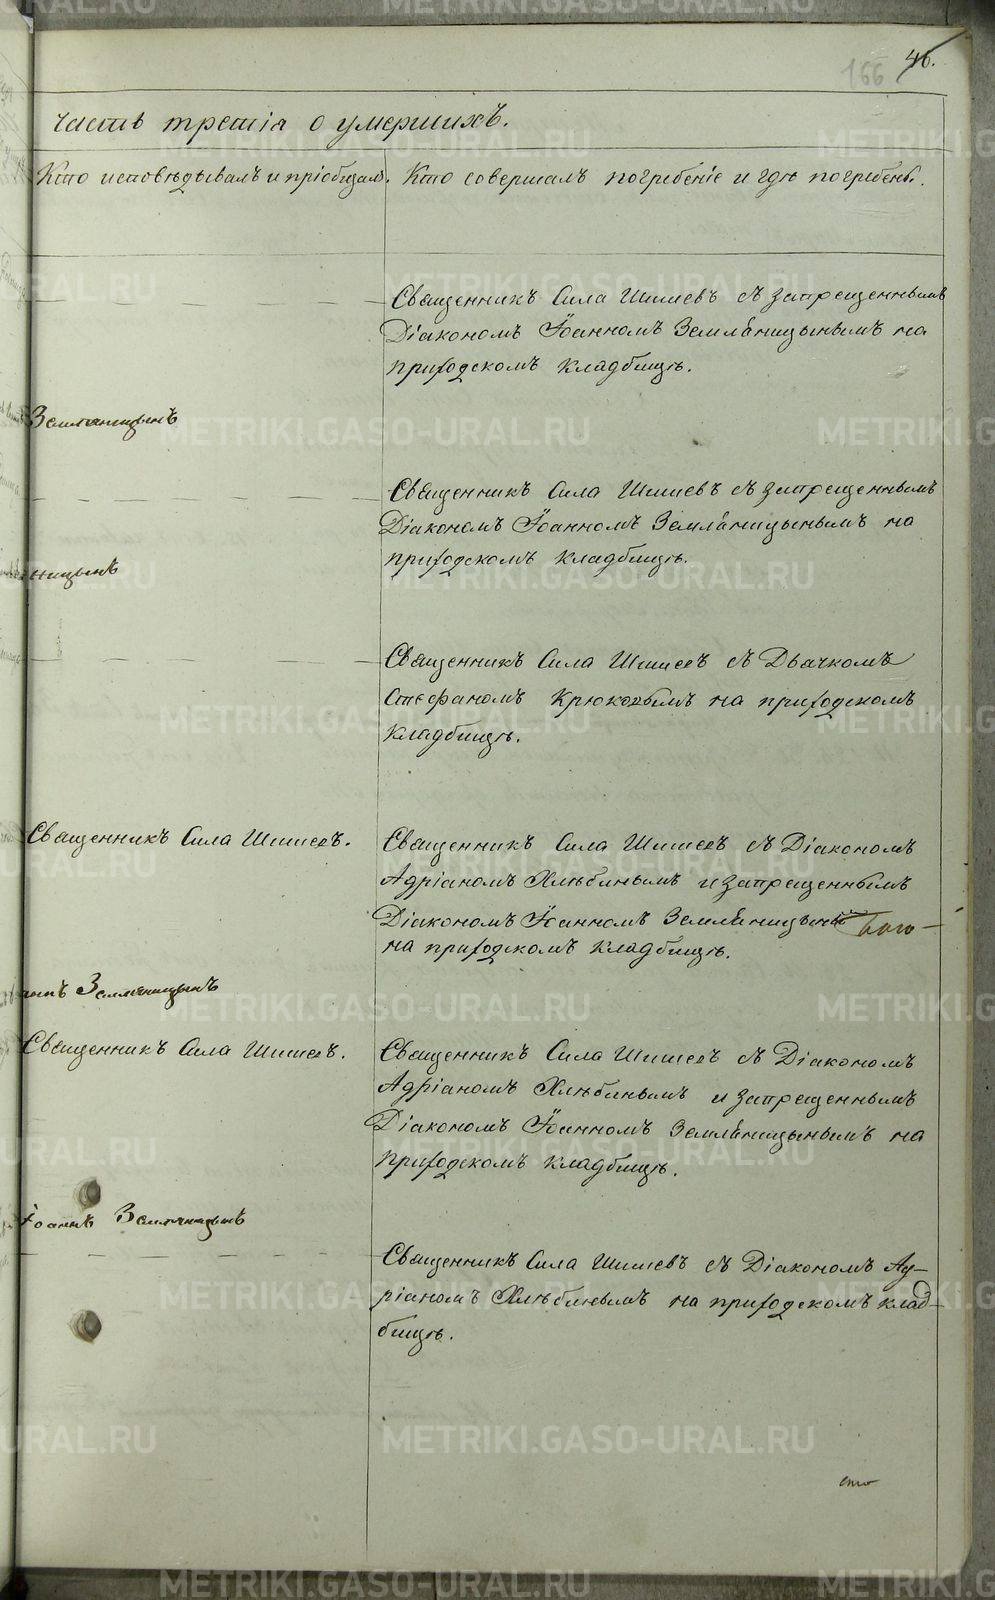 166 46.
часть третія о умершихъ.
Кто исповѣдывалъ и пріобщалъ. Кто совершалъ погребеніе и гдѣ погребены.
Священникъ Сила Шишевъ съ запрещеннымъ
Діакономъ Іоанномъ Земляницынымъ на
приходскомъ кладбищѣ.
Земляницынъ
Священникъ Сила Шишевъ съ запрещеннымъ
Діакономъ Іоанномъ Земляницынымъ на
приходскомъ кладбищѣ.
ницынъ
Священникъ Сила Шишевъ съ Дьячкомъ
Стефаномъ Крюковымъ на приходскомъ
кладбищѣ.
Священникъ Сила Шишевъ. Священникъ Сила Шишевъ съ Діакономъ
Адріаномъ Хлѣбинымъ и запрещеннымъ
Діакономъ Іоанномъ Земляницыны
на приходскомъ кладбищѣ.
аннъ Земляницынъ
Священникъ Сила Шишевъ. Священникъ Сила Шишевъ съ Діакономъ
Адріаномъ Хлѣбинымъ и запрещеннымъ
Діакономъ Іоанномъ Земляницынымъ на
приходскомъ кладбищѣ.
Іоаннъ Земляницынъ
Священникъ Сила Шишевъ съ Діакономъ Ад-
ріаномъ Хлѣбинымъ на приходскомъ клад-
бищѣ.
METRIKI.GASO-URAL.RU